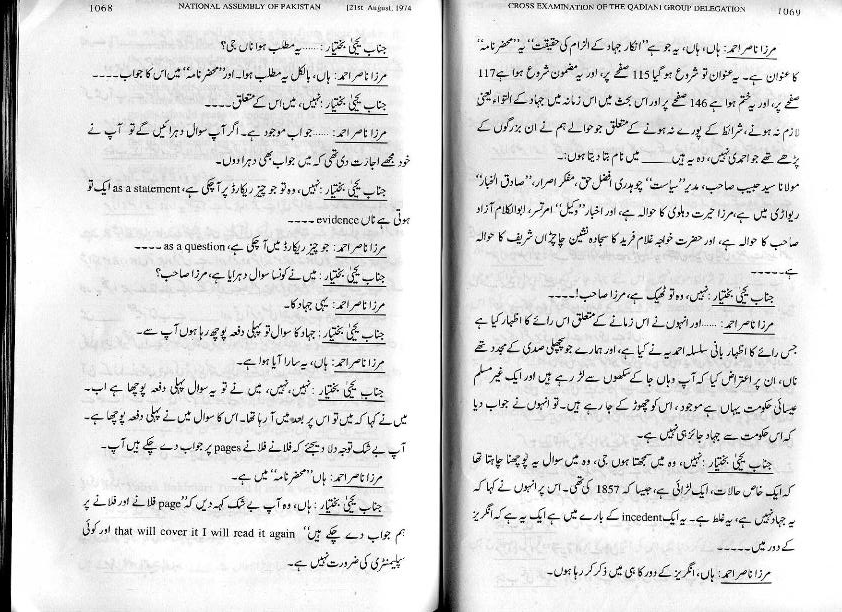 1068 NATIONAL ASSEMBLY OF PAKISTAN [21st August, 1974
جناب یحییٰ بختیار: ...... یہ مطلب ہوا ناں جی؟
مرزا ناصر احمد: ہاں، بالکل یہ مطلب ہوا۔ اور ”محضرنامہ“ میں اس کا جواب۔۔۔۔
جناب یحییٰ بختیار: نہیں، میں اس کے متعلق۔۔۔۔
مرزا ناصر احمد: ...... جواب موجود ہے۔ اگر آپ سوال دہرائیں گے تو آپ نے
خود مجھے اجازت دی تھی کہ میں جواب بھی دہرا دوں۔
جناب یحییٰ بختیار: نہیں، وہ تو جو چیز ریکارڈ پر آچکی ہے، as a statement ایک تو
ہوتی ہے ناں evidence ۔۔۔۔
مرزا ناصر احمد: جو چیز ریکارڈ میں آ چکی ہے، as a question ۔۔۔۔
جناب یحییٰ بختیار: میں نے کونسا سوال دہرایا ہے، مرزا صاحب؟
مرزا ناصر احمد: یہی جہاد کا۔
جناب یحییٰ بختیار: جہاد کا سوال تو پہلی دفعہ پوچھ رہا ہوں آپ سے۔
مرزا ناصر احمد: ہاں، یہ سارا آیا ہوا ہے۔
جناب یحییٰ بختیار: نہیں، نہیں، میں نے تو یہ سوال پہلی دفعہ پوچھا ہے اب۔
میں نے کہا کہ میں تو اس پر بعد میں آ رہا تھا۔ اس کا سوال میں نے پہلی دفعہ پوچھا ہے۔
آپ بے شک توجہ دلا دیجئے کہ فلانے فلانے pages پر جواب دے چکے ہیں آپ۔
مرزا ناصر احمد: ہاں ”محضرنامہ“ میں ہے۔
جناب یحییٰ بختیار: ہاں، وہ آپ بے شک کہہ دیں کہ ”page فلانے اور فلانے پر
ہم جواب دے چکے ہیں“ that will cover it I will read it again اور کوئی
سپلیمنٹری کی ضرورت نہیں ہے۔
CROSS EXAMINATION OF THE QADIANI GROUP DELEGATION 1069
مرزا ناصر احمد: ہاں، ہاں، یہ جو ہے ”انکار جہاد کے الزام کی حقیقت“ یہ ”محضرنامہ“
کا عنوان ہے۔ یہ عنوان تو شروع ہو گیا 115 صفحے پر، اور یہ مضمون شروع ہوا ہے 117
صفحے پر، اور یہ ختم ہوا ہے 146 صفحے پر اور اس بحث میں اس زمانہ میں جہاد کے التواء یعنی
لازم نہ ہونے، شرائط کے پورے نہ ہونے کے متعلق جو حوالے ہم نے ان بزرگوں کے
پڑھے تھے جو احمدی نہیں، وہ یہ ہیں ____ میں نام بتا دیتا ہوں:۔
مولانا سید حبیب صاحب، مدیر ”سیاست“ چوہدری افضل حق، مفکر احرار، ”صادق الخبار“
ریواڑی میں ہے، مرزا حیرت دہلوی کا حوالہ ہے، اور اخبار ”وکیل“ امرتسر، ابوالکلام آزاد
صاحب کا حوالہ ہے، اور حضرت خواجہ غلام فرید کا سجادہ نشین چاچڑاں شریف کا حوالہ
ہے۔۔۔۔۔
جناب یحییٰ بختیار: نہیں، وہ تو ٹھیک ہے، مرزا صاحب!۔۔۔۔
مرزا ناصر احمد: ...... اور انہوں نے اس زمانے کے متعلق اس رائے کا اظہار کیا ہے
جس رائے کا اظہار بانی سلسلہ احمدیہ نے کیا ہے، اور ہمارے جو پچھلی صدی کے مجدد تھے
ناں، ان پر اعتراض کیا کہ آپ وہاں جا کے سکھوں سے لڑ رہے ہیں اور ایک غیر مسلم
عیسائی حکومت یہاں ہے موجود، اس کو چھوڑ کے جا رہے ہیں۔ تو انہوں نے جواب دیا
کہ اس حکومت سے جہاد جائز ہی نہیں ہے۔
جناب یحییٰ بختیار: نہیں، وہ میں سمجھتا ہوں جی، وہ میں سوال یہ پوچھنا چاہتا تھا
کہ ایک خاص حالات، ایک لڑائی ہے، جیسا کہ 1857 کی تھی۔ اس پر انہوں نے کہا کہ
یہ جہاد نہیں ہے، یہ غلط ہے۔ یہ ایک incedent کے بارے میں ہے ایک یہ ہے کہ انگریز
کے دور میں۔۔۔۔۔
مرزا ناصر احمد: ہاں، انگریز کے دور کا ہی میں ذکر کر رہا ہوں۔